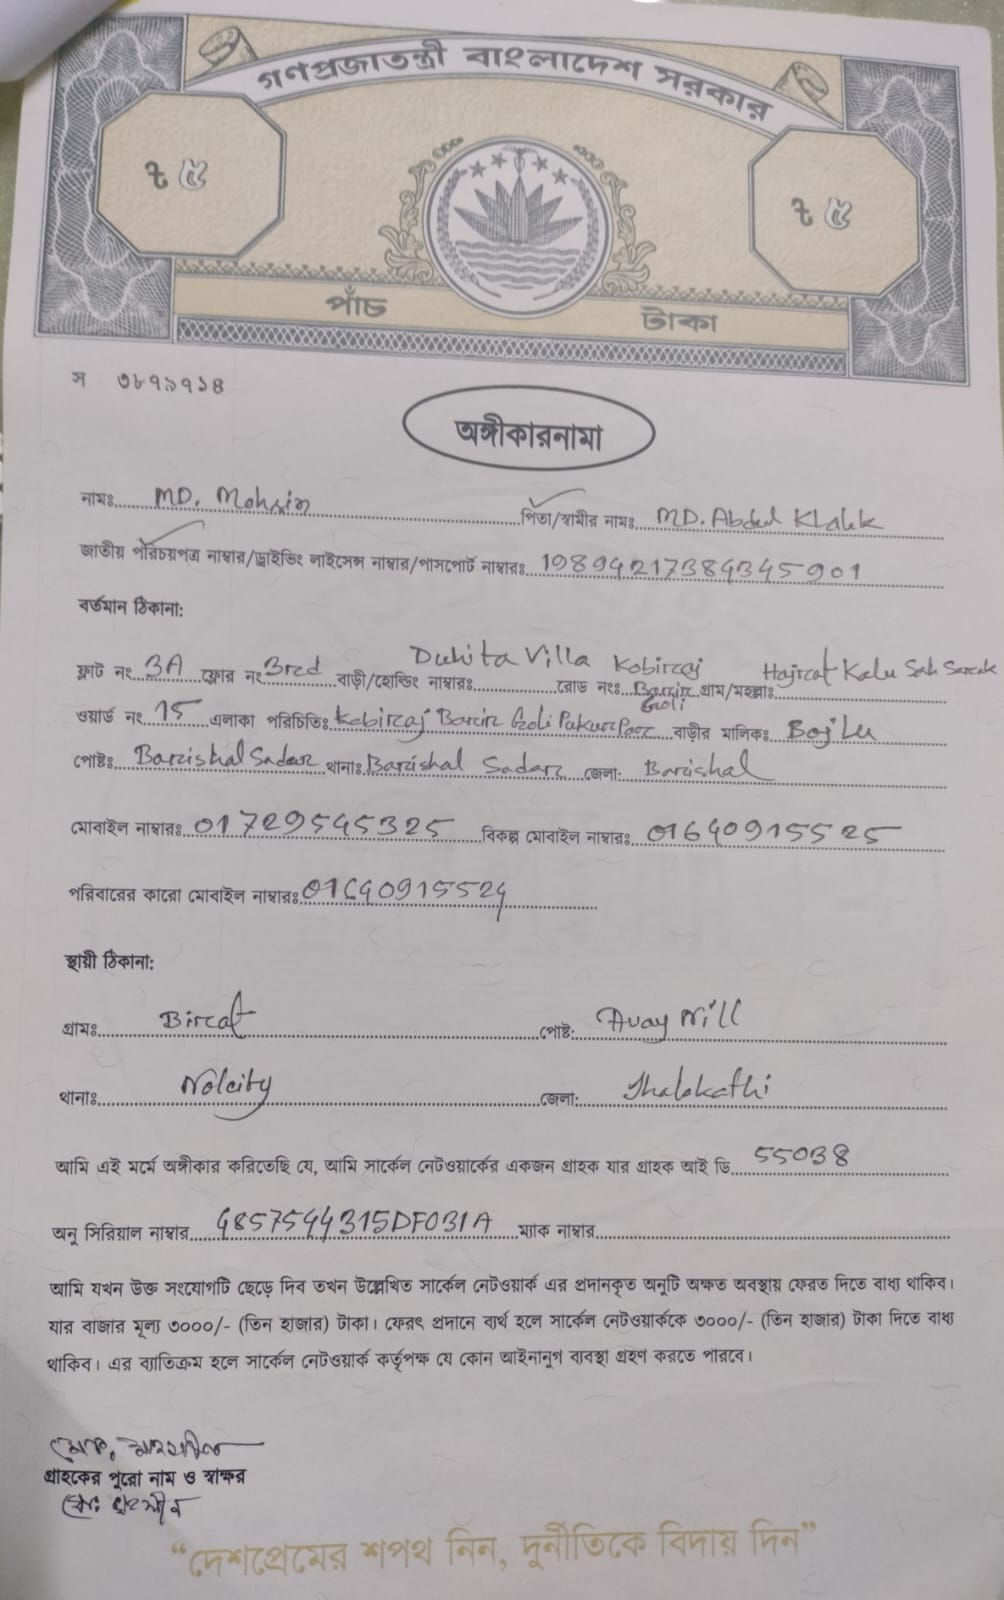 গণপ্রজাতন্ত্রী বাংলাদেশ সরকার
৳ ৫ ৳ ৫
পাঁচ টাকা
স ৩৮৭৯৭১৪
অঙ্গীকারনামা
নামঃ MD. Mohsin পিতা/স্বামীর নামঃ MD. Abdul Khalek
জাতীয় পরিচয়পত্র নাম্বার/ড্রাইভিং লাইসেন্স নাম্বার/পাসপোর্ট নাম্বারঃ 19894217384345901
বর্তমান ঠিকানা:
ফ্লাট নং 3A ফ্লোর নং 3rd বাড়ী/হোল্ডিং নাম্বারঃ Duhita Villa রোড নংঃ Kobiraj Barir Goli গ্রাম/মহল্লাঃ Hajrat Kalu Sah Sarak
ওয়ার্ড নং 15 এলাকা পরিচিতিঃ Kobiraj Barir Goli Pukur Par বাড়ীর মালিকঃ Bojlu
পোষ্টঃ Barishal Sadar থানাঃ Barishal Sadar জেলা: Barishal
মোবাইল নাম্বারঃ 01729545325 বিকল্প মোবাইল নাম্বারঃ 01640915525
পরিবারের কারো মোবাইল নাম্বারঃ 01640915524
স্থায়ী ঠিকানা:
গ্রামঃ Birat পোষ্ট:
থানাঃ Nolcity জেলা: Jhalokathi
আমি এই মর্মে অঙ্গীকার করিতেছি যে, আমি সার্কেল নেটওয়ার্কের একজন গ্রাহক যার গ্রাহক আই ডি 55038
অনু সিরিয়াল নাম্বার 4857544315DF031A ম্যাক নাম্বার
আমি যখন উক্ত সংযোগটি ছেড়ে দিব তখন উল্লেখিত সার্কেল নেটওয়ার্ক এর প্রদানকৃত অনুটি অক্ষত অবস্থায় ফেরত দিতে বাধ্য থাকিব।
যার বাজার মূল্য ৩০০০/- (তিন হাজার) টাকা। ফেরৎ প্রদানে ব্যর্থ হলে সার্কেল নেটওয়ার্ককে ৩০০০/- (তিন হাজার) টাকা দিতে বাধ্য
থাকিব। এর ব্যাতিক্রম হলে সার্কেল নেটওয়ার্ক কর্তৃপক্ষ যে কোন আইনানুগ ব্যবস্থা গ্রহণ করতে পারবে।
মোঃ মোহসীন
গ্রাহকের পুরো নাম ও স্বাক্ষর
মোঃ মোহসীন
“দেশপ্রেমের শপথ নিন, দুর্নীতিকে বিদায় দিন”